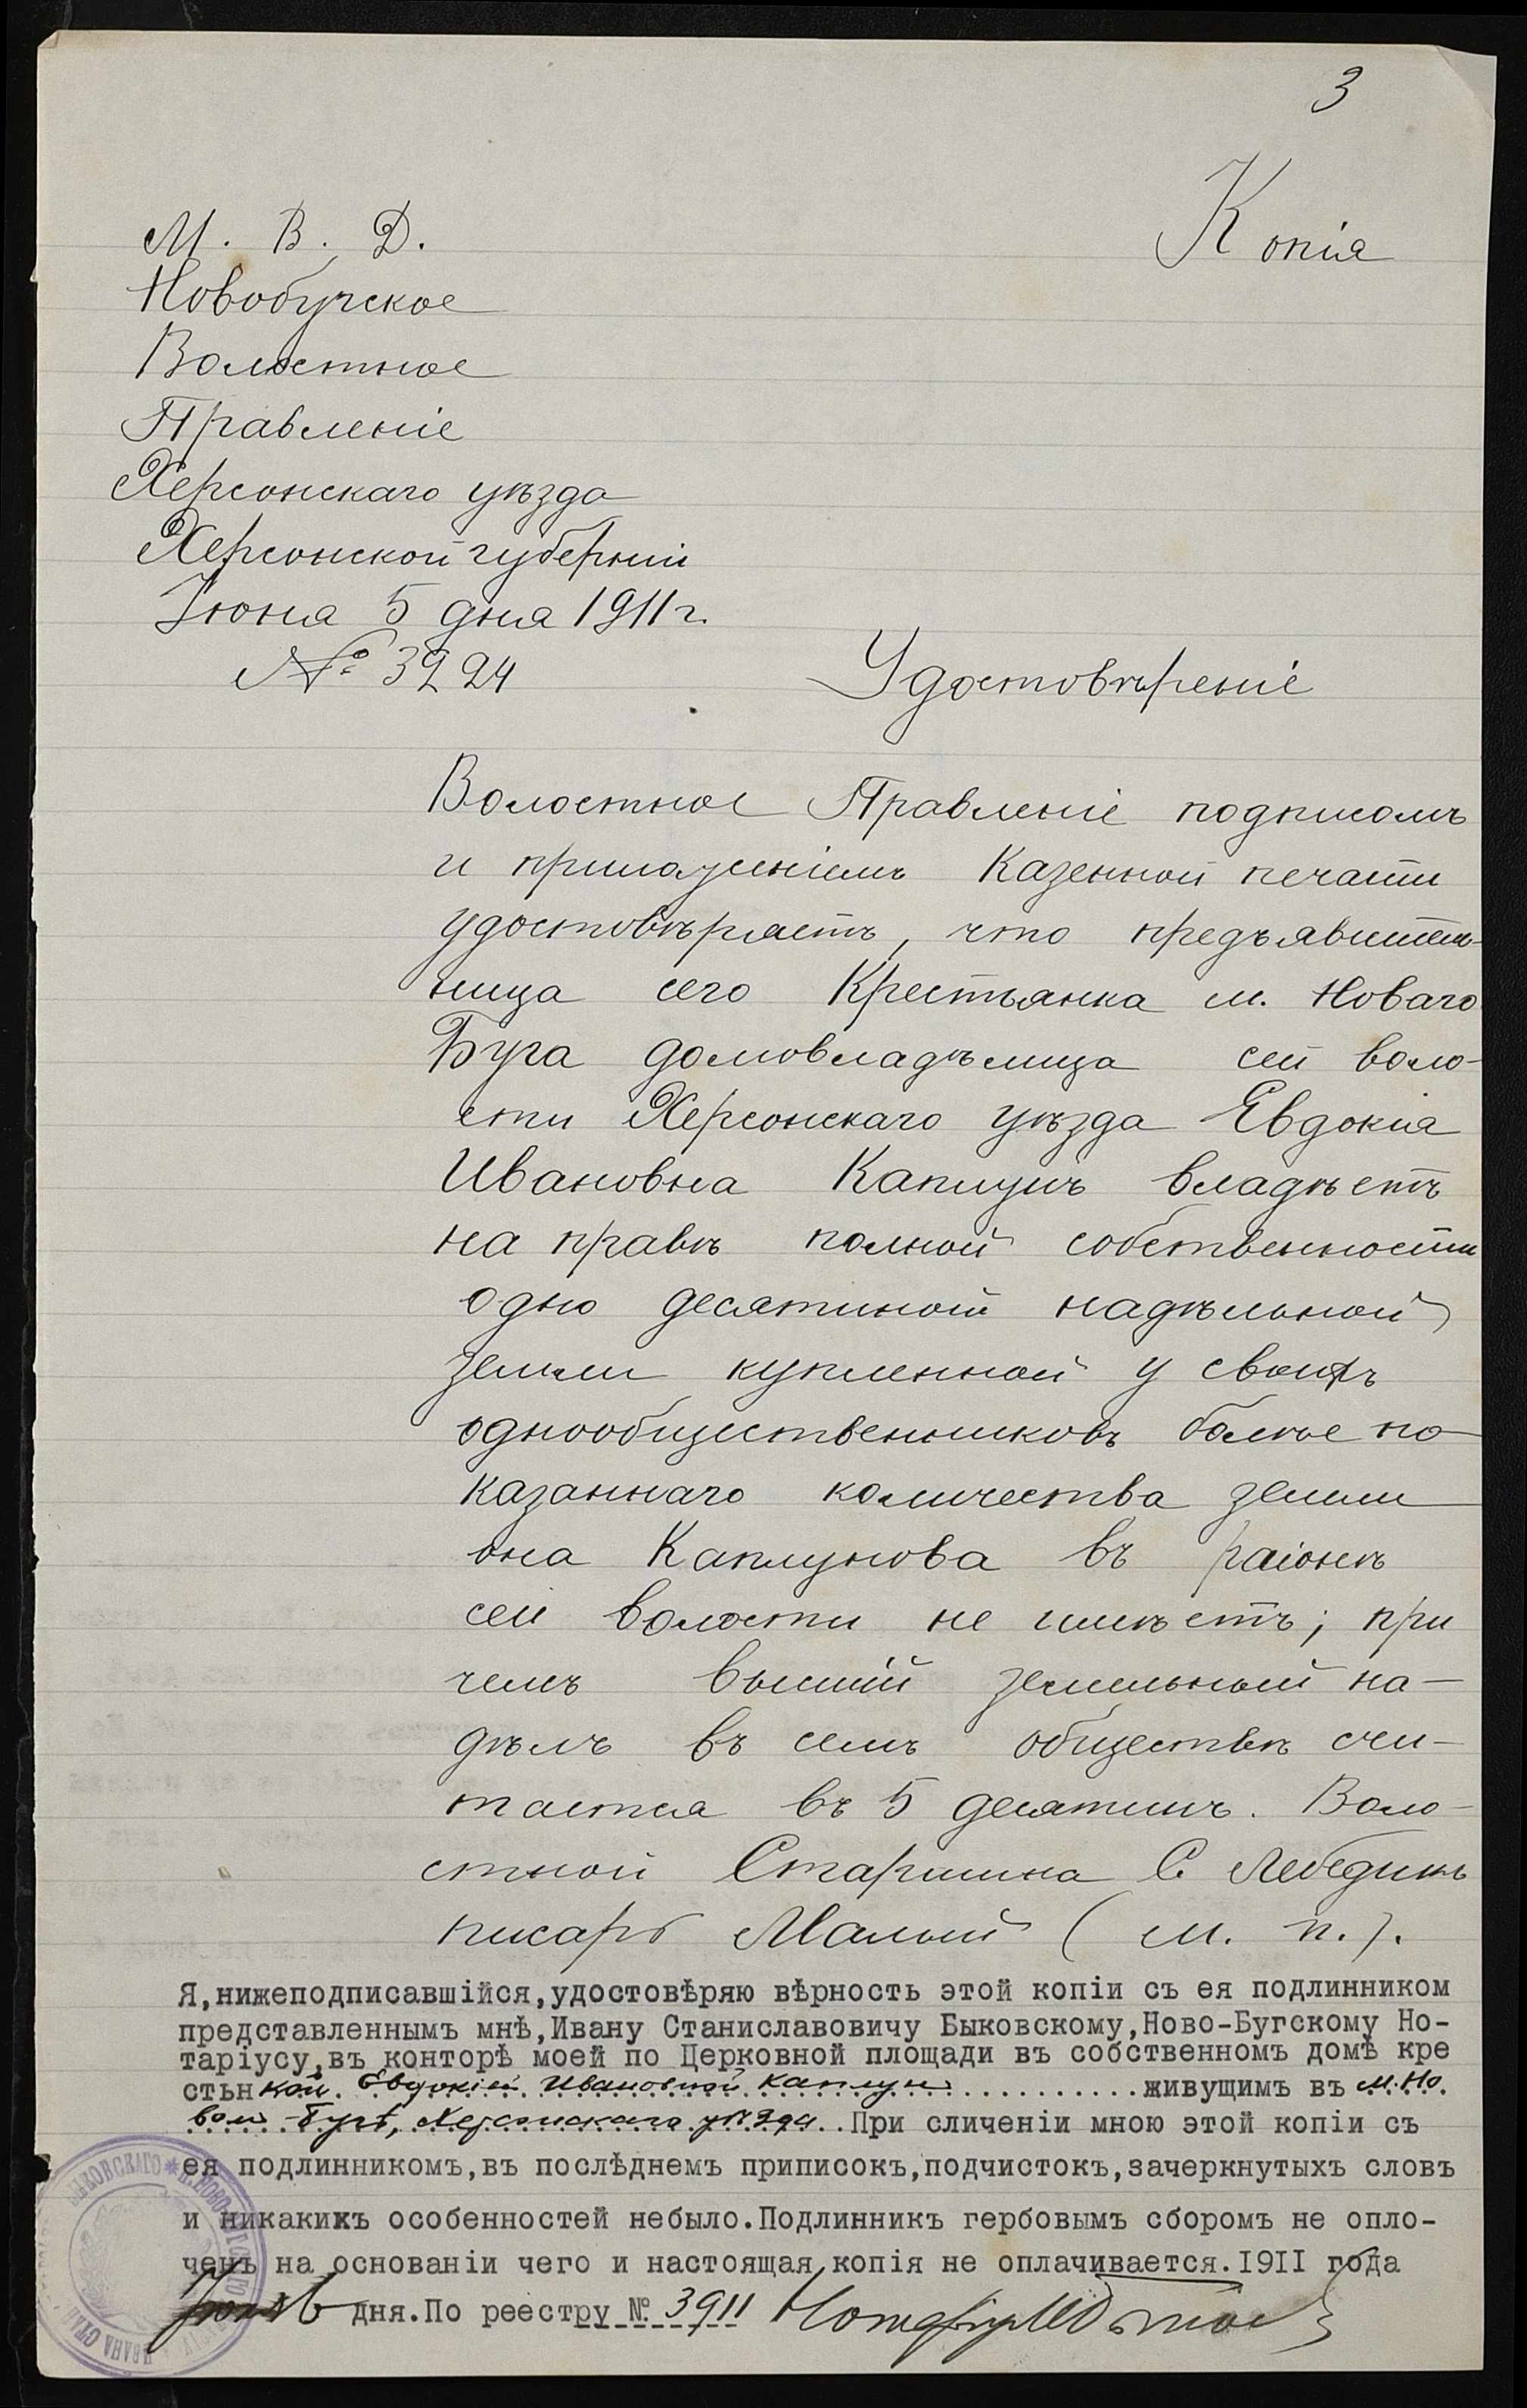 3
Копія
М. В. Д.
Новобугское
Волостное
Правленіе
Херсонскаго уѣзда
Херсонской губерніи
Іюня 5 дня 1911 г.
№ 3224
Удостовѣреніе
Волостное Правленіе подписомъ
и приложеніемъ Казенной печати
удостовѣряетъ, что предъявитель-
ница сего Крестьянка м. Новаго
Буга домовладѣлица сей воло-
сти Херсонскаго уѣзда Евдокія
Ивановна Каплунъ владѣетъ
на правѣ полной собственности
одно десятиной надѣльной
земли купленной у своихъ
однообщественниковъ болѣе по-
казаннаго количества земли
она Каплунова въ раіонѣ
сей волости не имѣетъ; при
чемъ высшій земельный на-
дѣлъ въ семъ обществѣ счи-
тается въ 5 десятинъ. Воло-
стной Старшина С. Лебединъ
писарь Малый ( м. п. ).
Я,нижеподписавшійся,удостовѣряю вѣрность этой копіи съ ея подлинником
представленнымъ мнѣ,Ивану Станиславовичу Быковскому,Ново-Бугскому Но-
таріусу,въ конторѣ моей по Церковной площади въ собственномъ домѣ кре
стьнкой Евдокіей Ивановной Каплунъ ........... живущимъ въ м. Но
вом Бугѣ, Херсонскаго уѣзда.. При сличеніи мною этой копіи съ
ея подлинникомъ,въ послѣднемъ приписокъ,подчистокъ,зачеркнутыхъ словъ
и никакихъ особенностей небыло.Подлинникъ гербовымъ сборомъ не опло-
ченъ на основаніи чего и настоящая копія не оплачивается.1911 года
дня.По реестру № 3911 Нотаріусъ